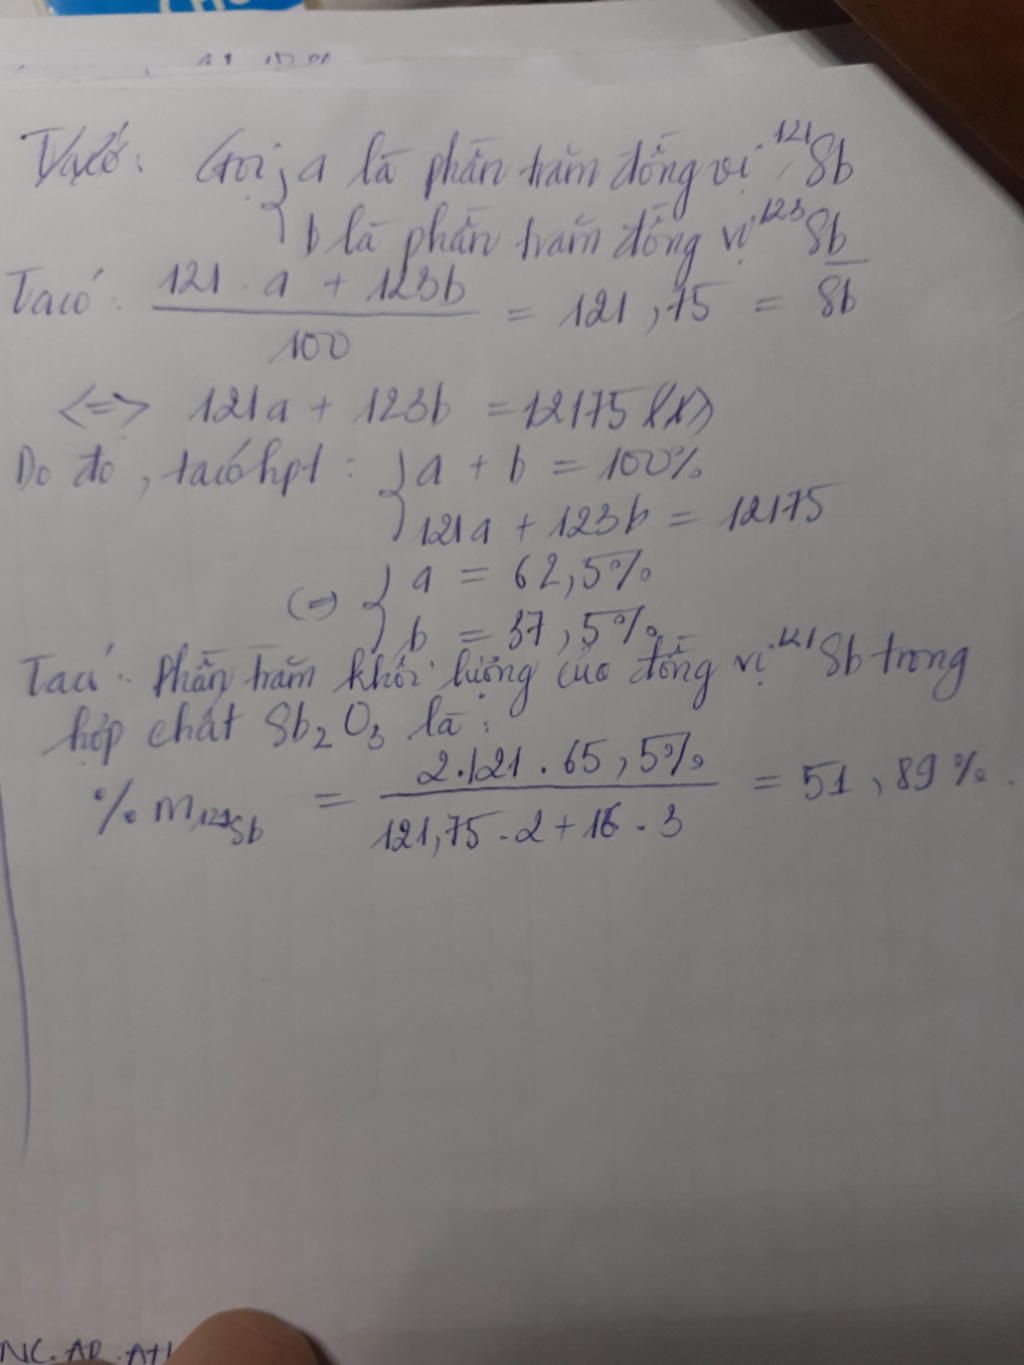 Ta có: Gọi { a là phần trăm đồng vị ¹²¹Sb
b là phần trăm đồng vị ¹²³Sb
Ta có: (121 . a + 123b) / 100 = 121,75 = S̅b̅
<=> 121a + 123b = 12175 (1)
Do đó, ta có hpt: { a + b = 100%
121a + 123b = 12175
(=) { a = 62,5%
b = 37,5%
Ta có: Phần trăm khối lượng của đồng vị ¹²¹Sb trong
hợp chất Sb₂O₃ là:
% m ¹²¹Sb = (2.121 . 65,5%) / (121,75 . 2 + 16 . 3) = 51,89%.